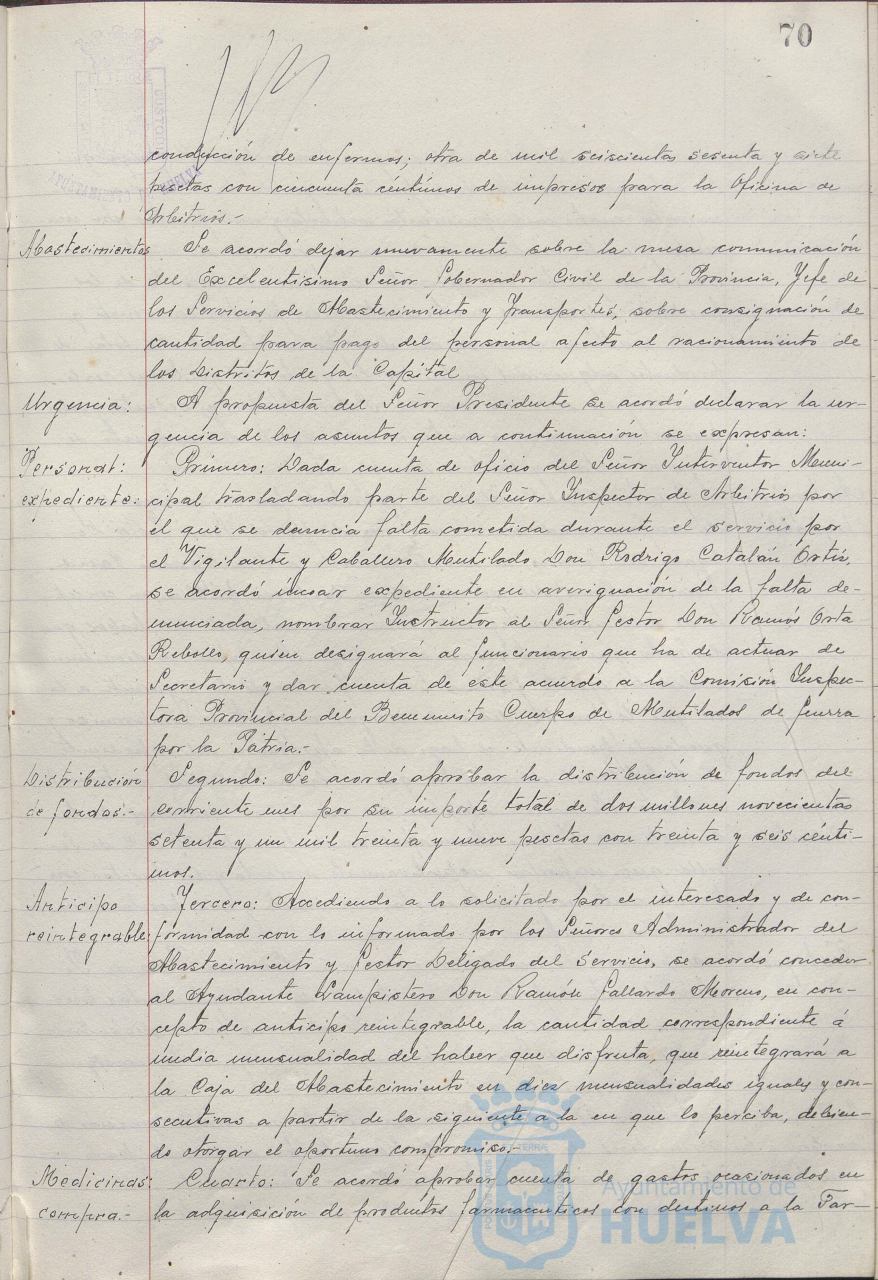 70
conducción de enfermos; otra de mil seiscientas sesenta y siete
pesetas con cincuenta céntimos de impresos para la Oficina de
Arbitrios.-
Abastecimientos Se acordó dejar nuevamente sobre la mesa comunicación
del Excelentísimo Señor Gobernador Civil de la Provincia, Jefe de
los Servicios de Abastecimiento y Transportes, sobre consignación de
cantidad para pago del personal afecto al racionamiento de
los Distritos de la Capital
Urgencia: A propuesta del Señor Presidente se acordó declarar la ur-
gencia de los asuntos que a continuación se expresan:
Personal: Primero: Dada cuenta de oficio del Señor Interventor Muni-
expediente: cipal trasladando parte del Señor Inspector de Arbitrios por
el que se denuncia falta cometida durante el servicio por
el Vigilante y Caballero Mutilado Don Rodrigo Catalán Ortiz,
se acordó incoar expediente en averiguación de la falta de-
nunciada, nombrar Instructor al Señor Gestor Don Ramós Orta
Rebollo, quien designará al funcionario que ha de actuar de
Secretario y dar cuenta de éste acuerdo a la Comisión Inspec-
tora Provincial del Benemérito Cuerpo de Mutilados de Guerra
por la Pátria.-
Distribución Segundo: Se acordó aprobar la distribución de fondos del
de fondos.- corriente mes por su importe total de dos millones novecientas
setenta y un mil treinta y nueve pesetas con treinta y seis cénti-
mos.
Anticipo Tercero: Accediendo a lo solicitado por el interesado y de con-
reintegrable: formidad con lo informado por los Señores Administrador del
Abastecimiento y Gestor Delegado del Servicio, se acordó conceder
al Ayudante Lampistero Don Ramón Gallardo Moreno, en con-
cepto de anticipo reintegrable, la cantidad correspondiente á
media mensualidad del haber que disfruta, que reintegrará a
la Caja del Abastecimiento en diez mensualidades iguales y con-
secutivas a partir de la siguiente a la en que lo perciba, debien-
do otorgar el oportuno compromiso.-
Medicinas: Cuarto: Se acordó aprobar cuenta de gastos ocasionados en
compra.- la adquisición de productos farmacéuticos con destinos a la Far-
Ayuntamiento de
HUELVA